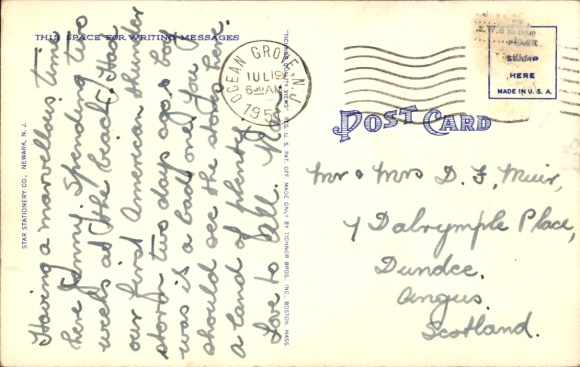 THIS SPACE FOR WRITING MESSAGES
Having a marvellous time
here Jenny. Spending two
weeks at the beach. Had
our first American thunder
storm two days ago & boy
was it a bad one. you
should see the stores here.
a land of plenty.
Love to all.
STAR STATIONERY CO., NEWARK, N. J.
"TICHNOR QUALITY VIEWS" REG. U. S. PAT. OFF. MADE ONLY BY TICHNOR BROS., INC., BOSTON, MASS
OCEAN GROVE N.J.
JUL 19
6 30 AM
195
PLACE
STAMP
HERE
MADE IN U. S. A.
POST CARD
Mr & Mrs D. F. Muir,
7 Dalrymple Place,
Dundee.
Angus.
Scotland.